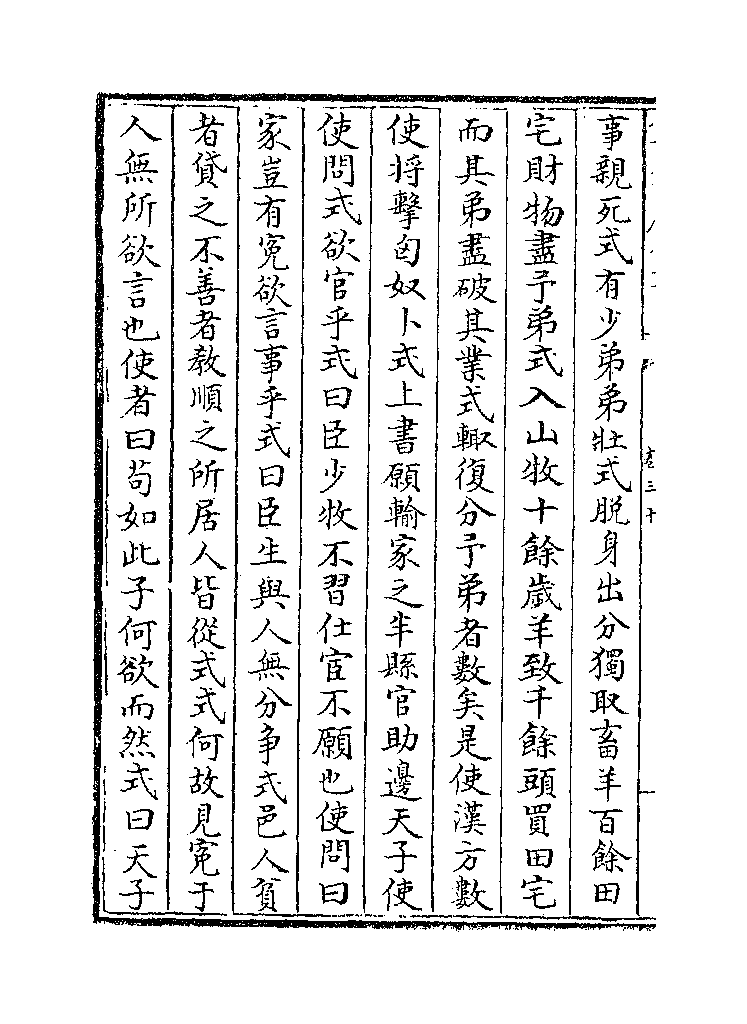 事親死式有少弟弟壯式脱身出分獨取畜羊百餘田
宅財物盡予弟式入山牧十餘歲羊致千餘頭買田宅
而其弟盡破其業式輙復分予弟者數矣是使漢方數
使將擊匈奴卜式上書願輸家之半縣官助邊天子使
使問式欲官乎式曰臣少牧不習仕宦不願也使問曰
家豈有寃欲言事乎式曰臣生與人無分争式邑人貧
者貸之不善者教順之所居人皆從式式何故見寃于
人無所欲言也使者曰茍如此子何欲而然式曰天子